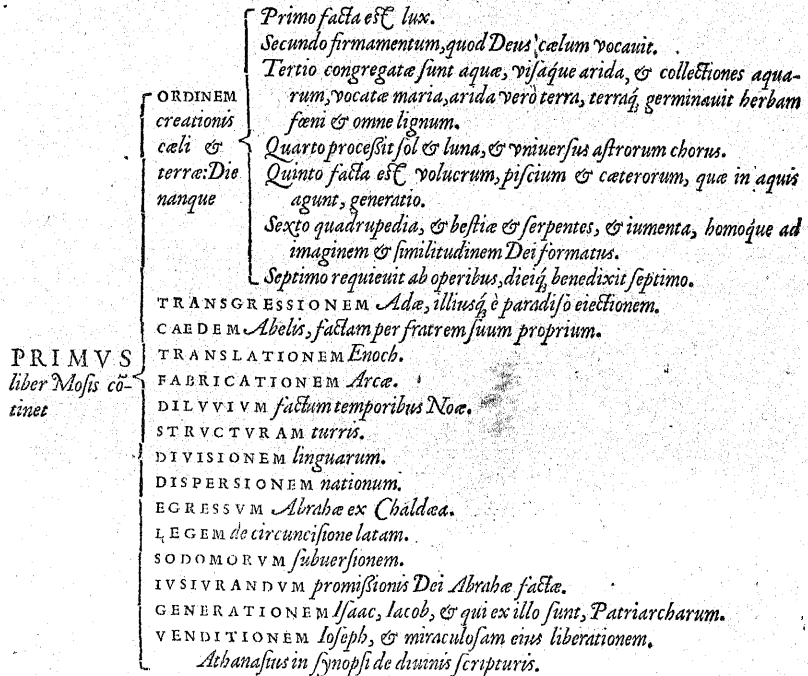 Primo facta est lux.
Secundo firmamentum, quod Deus cælum vocauit.
Tertio congregatæ ſunt aquæ, viſáque arida, & collectiones aqua-
rum, vocatæ maria, arida verò terra, terraq́; germinauit herbam
fœni & omne lignum.
Quarto proceßit ſol & luna, & vniuerſus aſtrorum chorus.
Quinto facta est volucrum, piſcium & cæterorum, quæ in aquis
agunt, generatio.
Sexto quadrupedia, & beſtiæ & ſerpentes, & iumenta, homoque ad
imaginem & ſimilitudinem Dei formatus.
Septimo requieuit ab operibus, dieiq́; benedixit ſeptimo.
ORDINEM
creationis
cæli &
terræ: Die
nanque
TRANSGRESSIONEM Adæ, illiuſq́; è paradiſo eiectionem.
CAEDEM Abelis, factam per fratrem ſuum proprium.
TRANSLATIONEM Enoch.
FABRICATIONEM Arcæ.
DILVVIVM factum temporibus Noæ.
STRVCTVRAM turris.
DIVISIONEM linguarum.
DISPERSIONEM nationum.
EGRESSVM Abrahæ ex Chaldæa.
LEGEM de circunciſione latam.
SODOMORVM ſubuerſionem.
IVSIVRANDVM promißionis Dei Abrahæ factæ.
GENERATIONEM Iſaac, Iacob, & qui ex illo ſunt, Patriarcharum.
VENDITIONEM Ioſeph, & miraculoſam eius liberationem.
Athanaſius in ſynopſi de diuinis ſcripturis.
PRIMVS
liber Moſis cō-
tinet